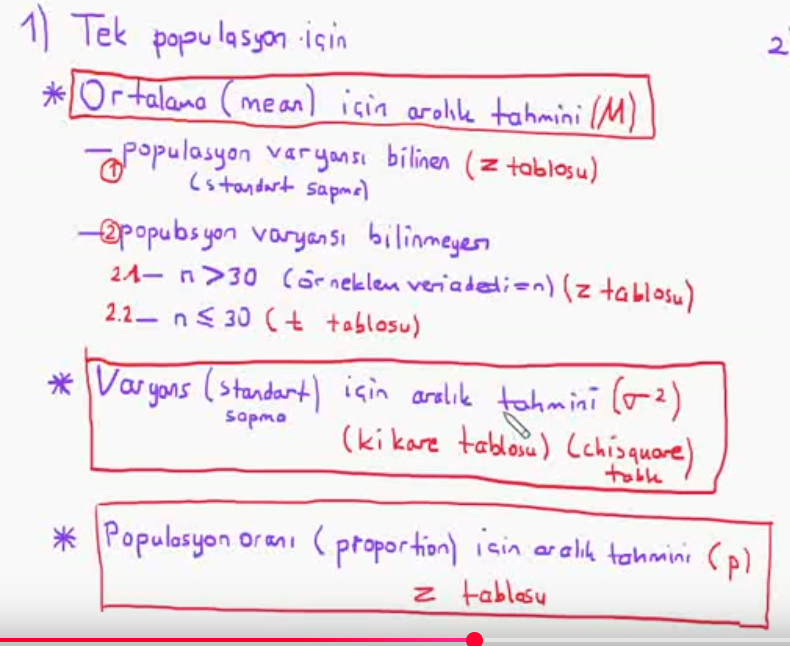 1) Tek populasyon için
2
* Ortalama (mean) için aralık tahmini (M)
— populasyon varyansı bilinen (z tablosu)
① (standart sapma)
—② populasyon varyansı bilinmeyen
2.1— n > 30 (örneklem veri adedi=n) (z tablosu)
2.2— n ≤ 30 (t tablosu)
* Varyans (standart) için aralık tahmini (σ²)
sapma
(ki kare tablosu) (chisquare)
table
* Populasyon oranı (proportion) için aralık tahmini (p)
z tablosu